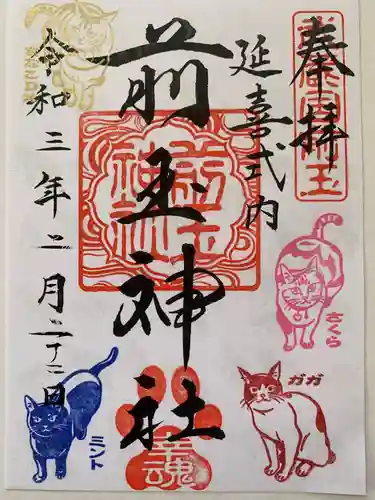 奉拝
延喜式内
前玉神社
令和三年二月二十二日
前玉神社
幸魂
さくら
ガガ
ミント